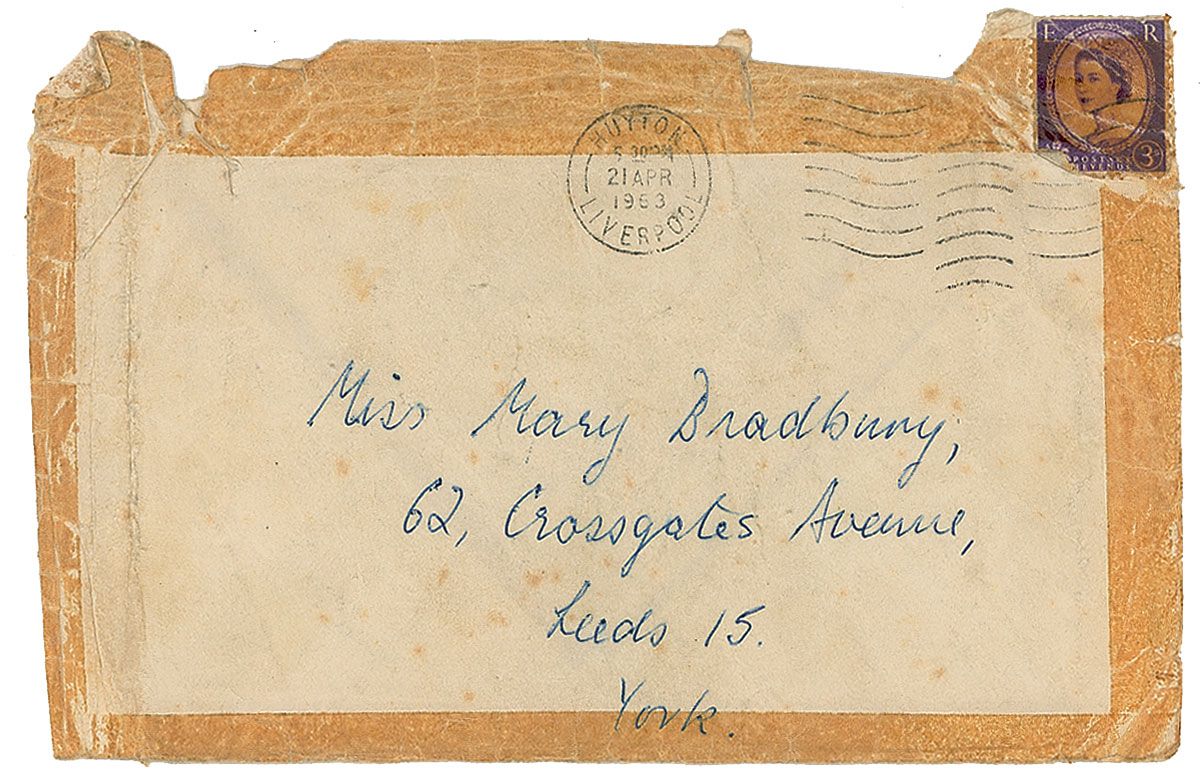 E R
HUYTON
5 30 PM
21 APR
1963
LIVERPOOL
POSTAGE
REVENUE
3D
Miss Mary Bradbury,
62, Crossgates Avenue,
Leeds 15.
York.